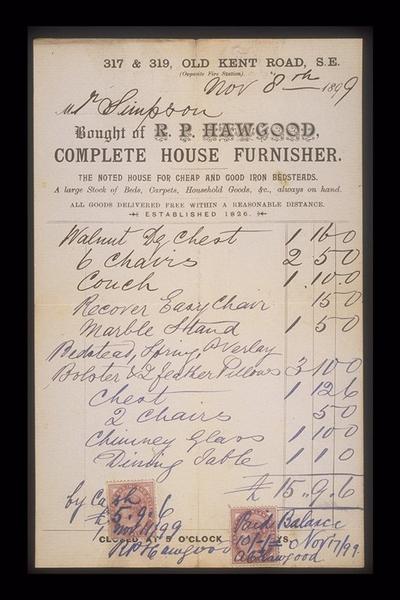 317 & 319, OLD KENT ROAD, S.E.
(Opposite Fire Station).
Nov 8th 1899
Mr Simpson
Bought of R. P. HAWGOOD,
COMPLETE HOUSE FURNISHER.
THE NOTED HOUSE FOR CHEAP AND GOOD IRON BEDSTEADS.
A large Stock of Beds, Carpets, Household Goods, &c., always on hand.
ALL GOODS DELIVERED FREE WITHIN A REASONABLE DISTANCE.
ESTABLISHED 1826.
Walnut Dg Chest 1 16 0
6 Chairs 2 5 0
Couch 1 . 10 . 0
Recover Easy Chair 15 0
Marble Stand 1 5 0
Bedstead, Spring, Overlay
Bolster & 2 feather Pillows 3 10 0
Chest 1 12 6
2 Chairs 5 0
Chimney Glass 1 10 0
Dining Table 1 1 0
£ 15 . 9 . 6
by Cash
£ 5 . 9 . 6
Nov 11/99
Paid Balance
CLOSED AT 5 O'CLOCK YS.
10/-/- Nov 17/99
RP Hawgood